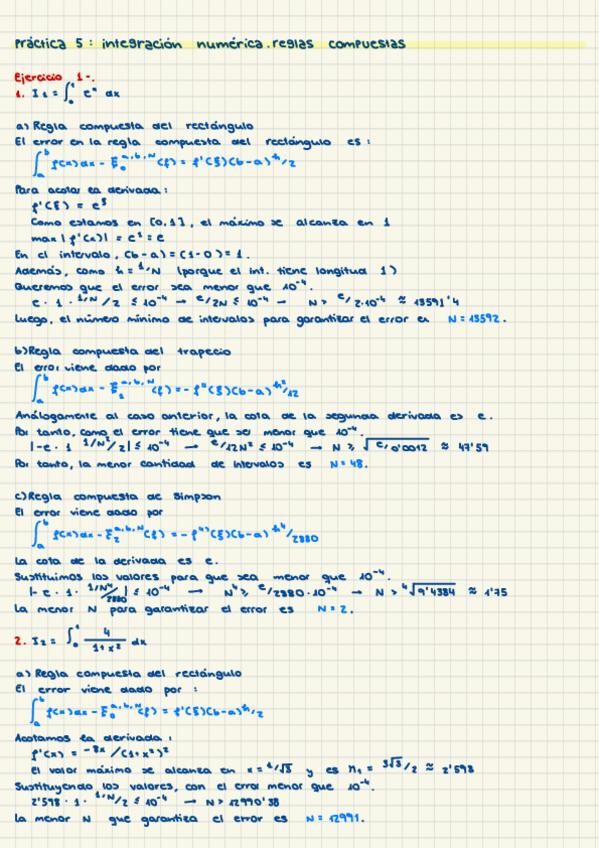 Práctica 5: integración numérica. reglas compuestas
Ejercicio 1-.
1. I₁ = ∫₀¹ eˣ dx
a) Regla compuesta del rectángulo
El error en la regla compuesta del rectángulo es:
∫ₐᵇ f(x)dx - F₀^{a,b,N}(f) = f'(ξ)(b-a) h/2
Para acotar la derivada:
f'(ξ) = e^ξ
Como estamos en [0,1], el máximo se alcanza en 1
max |f'(x)| = e¹ = e
En el intervalo, (b-a) = (1-0) = 1.
Además, como h = 1/N (porque el int. tiene longitud 1)
Queremos que el error sea menor que 10⁻⁴.
e · 1 · 1/N /2 ≤ 10⁻⁴ → e/2N ≤ 10⁻⁴ → N > e/2·10⁻⁴ ≈ 13591'4
Luego, el número mínimo de intervalos para garantizar el error es N = 13592.
b) Regla compuesta del trapecio
El error viene dado por
∫ₐᵇ f(x)dx - F₁^{a,b,N}(f) = - f''(ξ)(b-a) h²/12
Análogamente al caso anterior, la cota de la segunda derivada es e.
Por tanto, como el error tiene que ser menor que 10⁻⁴.
|-e · 1 1/N²/2| ≤ 10⁻⁴ → e/12N² ≤ 10⁻⁴ → N ≥ √(e/0'0012) ≈ 47'59
Por tanto, la menor cantidad de intervalos es N = 48.
c) Regla compuesta de Simpson
El error viene dado por
∫ₐᵇ f(x)dx - F₂^{a,b,N}(f) = - f⁴⁾(ξ)(b-a) h⁴/2880
La cota de la derivada es e.
Sustituimos los valores para que sea menor que 10⁻⁴.
|- e · 1 · 1/N⁴/2880 | ≤ 10⁻⁴ → N⁴ ≥ e/2880·10⁻⁴ → N > ⁴√9'4384 ≈ 1'75
La menor N para garantizar el error es N = 2.
2. I₂ = ∫₀¹ 4/(1+x²) dx
a) Regla compuesta del rectángulo
El error viene dado por :
∫ₐᵇ f(x)dx - F₀^{a,b,N}(f) = f'(ξ)(b-a) h/2
Acotamos la derivada:
f'(x) = -8x /(1+x²)²
El valor máximo se alcanza en x = 1/√3 y es M₁ = 3√3/2 ≈ 2'598
Sustituyendo los valores, con el error menor que 10⁻⁴.
2'598 · 1 · 1/N/2 ≤ 10⁻⁴ → N > 12990'38
La menor N que garantiza el error es N = 12991.